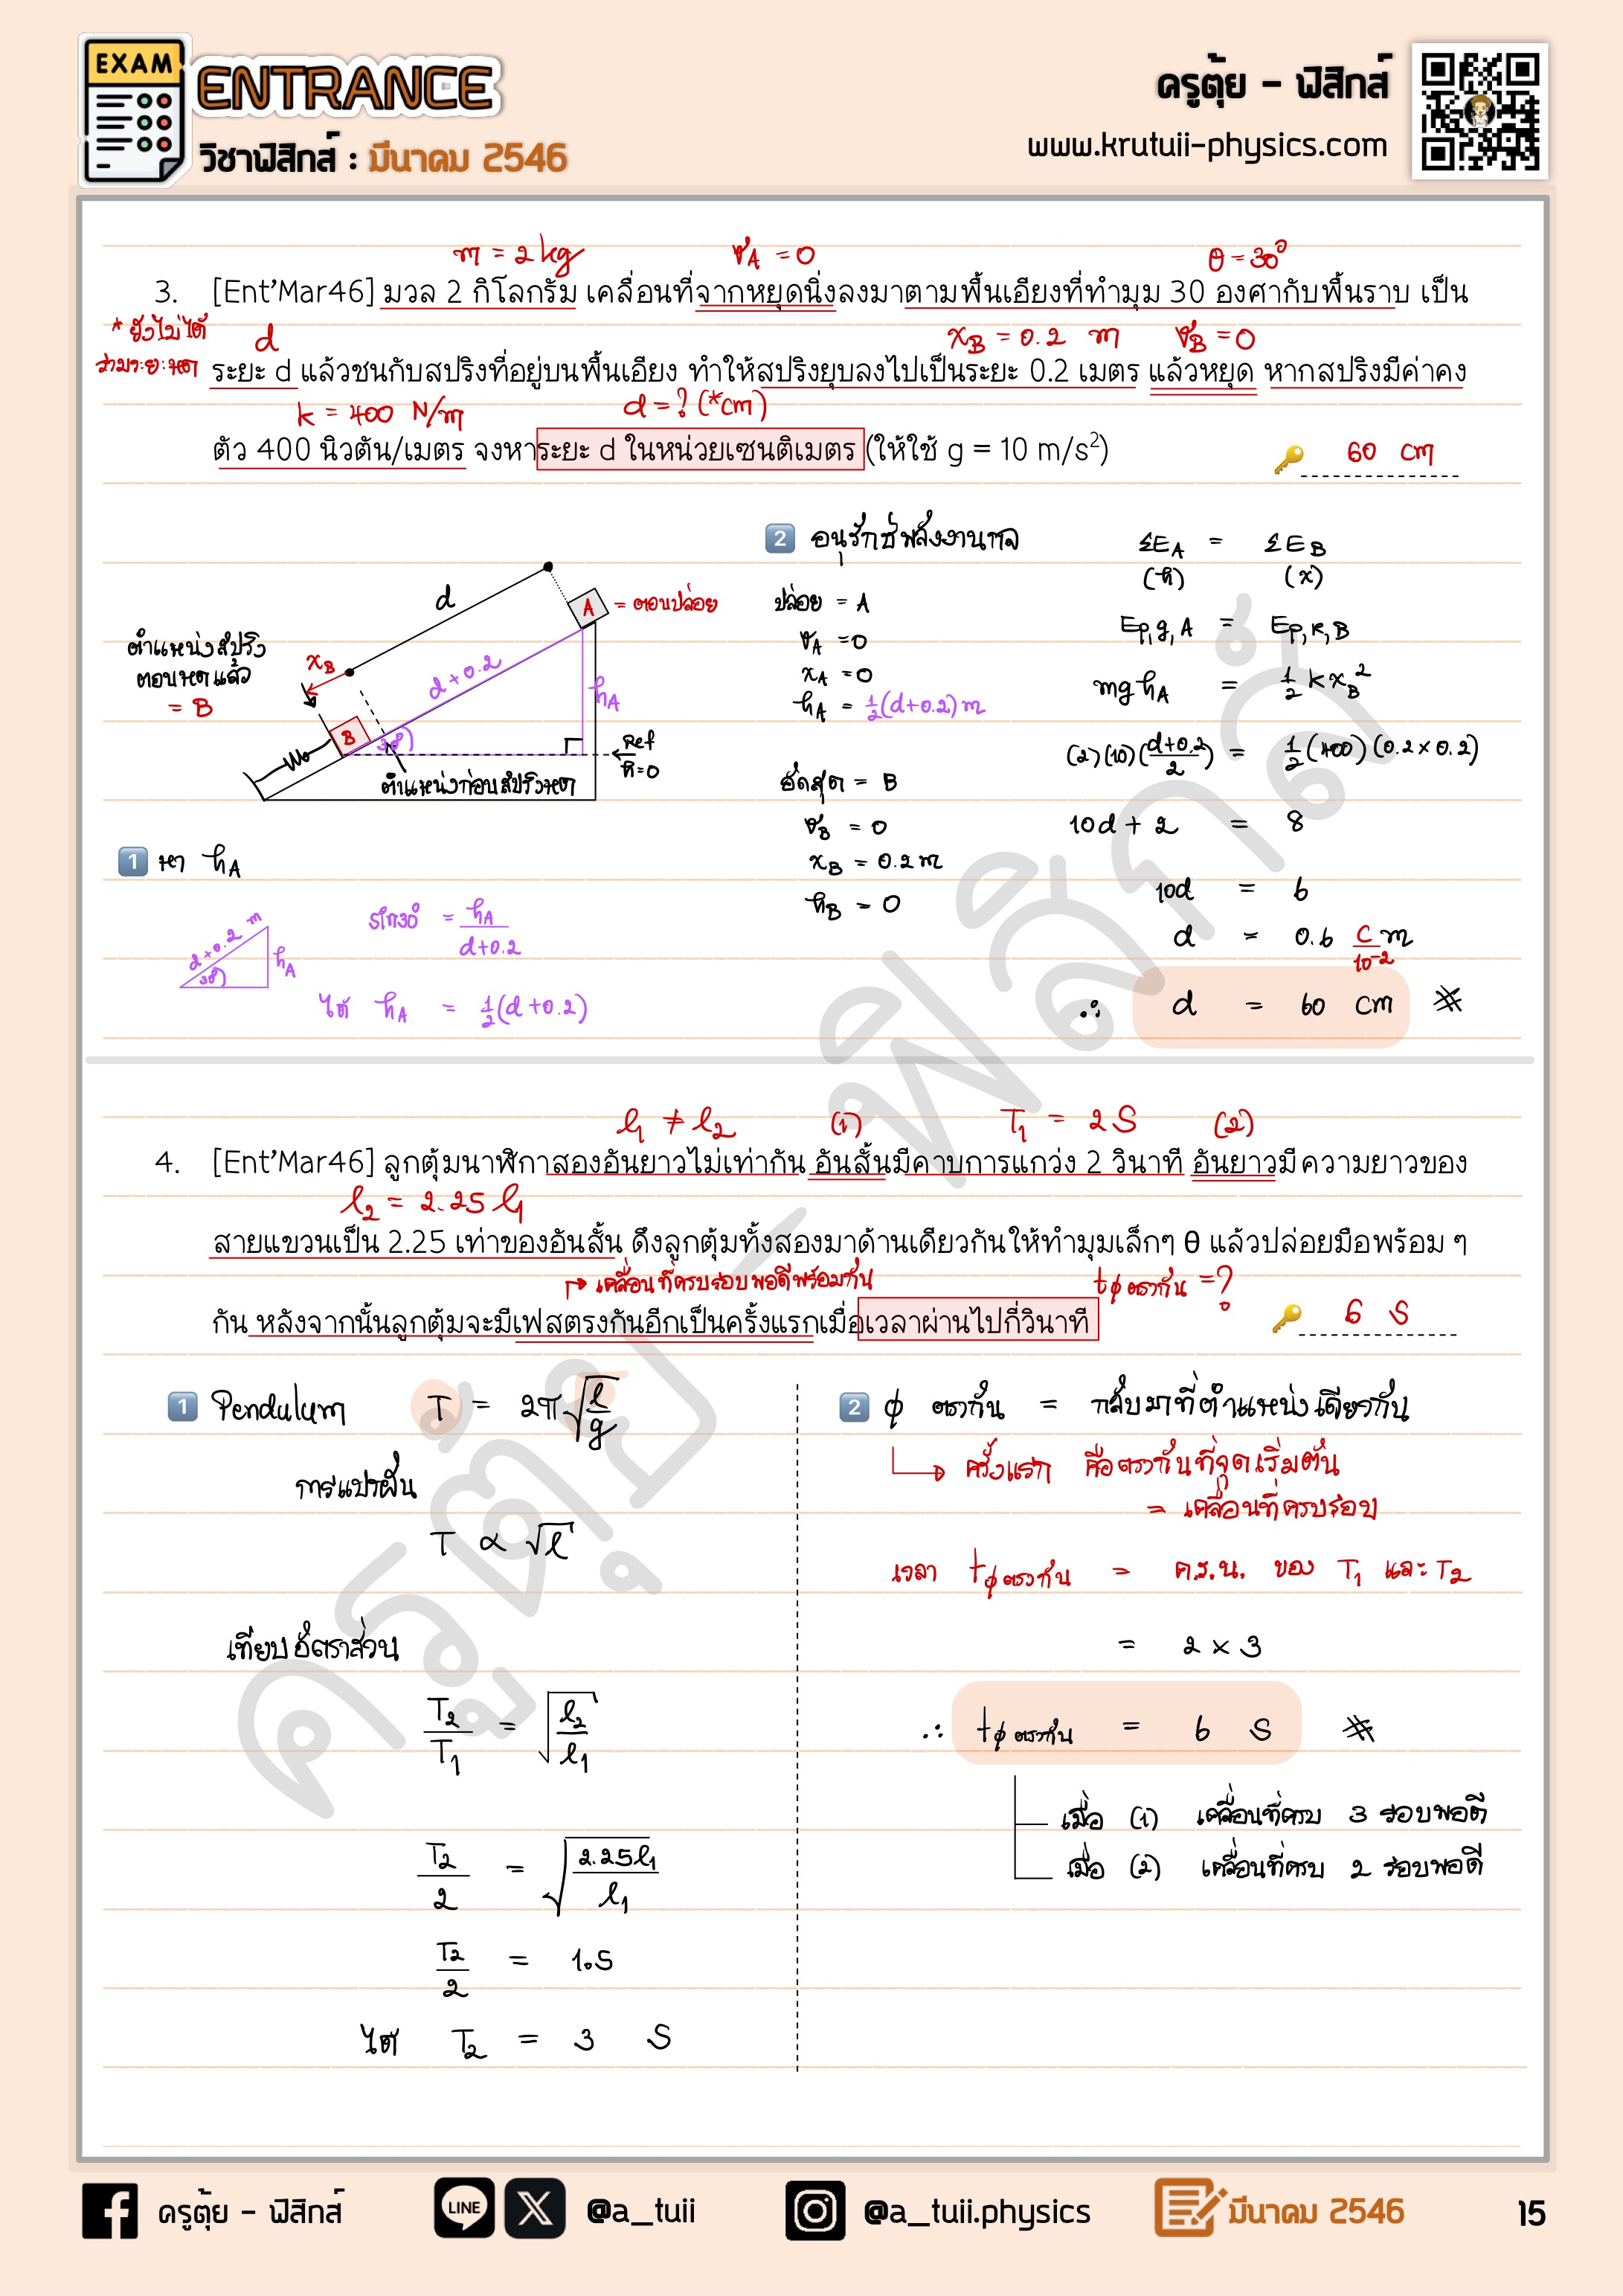 EXAM
ENTRANCE
วิชาฟิสิกส์ : มีนาคม 2546
ครูตุ้ย - ฟิสิกส์
www.krutuii-physics.com
m = 2 kg v_A = 0 θ = 30°
3. [Ent'Mar46] มวล 2 กิโลกรัม เคลื่อนที่จากหยุดนิ่งลงมาตามพื้นเอียงที่ทำมุม 30 องศากับพื้นราบ เป็น
* ยังไม่ได้
รวมระยะหด
d x_B = 0.2 m v_B = 0
ระยะ d แล้วชนกับสปริงที่อยู่บนพื้นเอียง ทำให้สปริงยุบลงไปเป็นระยะ 0.2 เมตร แล้วหยุด หากสปริงมีค่าคง
k = 400 N/m d = ? (*cm)
ตัว 400 นิวตัน/เมตร จงหาระยะ d ในหน่วยเซนติเมตร (ให้ใช้ g = 10 m/s²)
60 cm
d
A = ตอนปล่อย
ตำแหน่งสปริง
ตอนหดแล้ว
= B
x_B
d+0.2
h_A
B
30°
Ref
h=0
ตำแหน่งก่อนสปริงหด
1 หา h_A
d+0.2 m
30°
h_A
sin30 = h_A / d+0.2
ได้ h_A = ½(d+0.2)
2 อนุรักษ์พลังงานกล
ปล่อย = A
v_A = 0
x_A = 0
h_A = ½(d+0.2) m
อัดสุด = B
v_B = 0
x_B = 0.2 m
h_B = 0
ΣE_A = ΣE_B
(h) (x)
E_p,g,A = E_p,k,B
mgh_A = ½kx_B²
(2)(10)(d+0.2 / 2) = ½(400)(0.2×0.2)
10d + 2 = 8
10d = 6
d = 0.6 c/10⁻² m
∴ d = 60 cm
l₁ ≠ l₂ (1) T₁ = 2 S (2)
4. [Ent'Mar46] ลูกตุ้มนาฬิกาสองอันยาวไม่เท่ากัน อันสั้นมีคาบการแกว่ง 2 วินาที อันยาวมีความยาวของ
l₂ = 2.25 l₁
สายแขวนเป็น 2.25 เท่าของอันสั้น ดึงลูกตุ้มทั้งสองมาด้านเดียวกันให้ทำมุมเล็กๆ θ แล้วปล่อยมือพร้อม ๆ
เคลื่อนที่ครบรอบพอดีพร้อมกัน t φ ตรงกัน = ?
กัน หลังจากนั้นลูกตุ้มจะมีเฟสตรงกันอีกเป็นครั้งแรกเมื่อเวลาผ่านไปกี่วินาที
6 S
1 Pendulum T = 2π√(l/g)
การแปรผัน
T ∝ √l
เทียบอัตราส่วน
T₂/T₁ = √(l₂/l₁)
T₂/2 = √(2.25l₁/l₁)
T₂/2 = 1.5
ได้ T₂ = 3 S
2 φ ตรงกัน = กลับมาที่ตำแหน่งเดียวกัน
ครั้งแรก คือตรงกันที่จุดเริ่มต้น
= เคลื่อนที่ครบรอบ
เวลา t φ ตรงกัน = ค.ร.น. ของ T₁ และ T₂
= 2 × 3
∴ t φ ตรงกัน = 6 S
เมื่อ (1) เคลื่อนที่ครบ 3 รอบพอดี
เมื่อ (2) เคลื่อนที่ครบ 2 รอบพอดี
ครูตุ้ย - ฟิสิกส์
ครูตุ้ย - ฟิสิกส์
LINE
@a_tuii
@a_tuii.physics
มีนาคม 2546
15